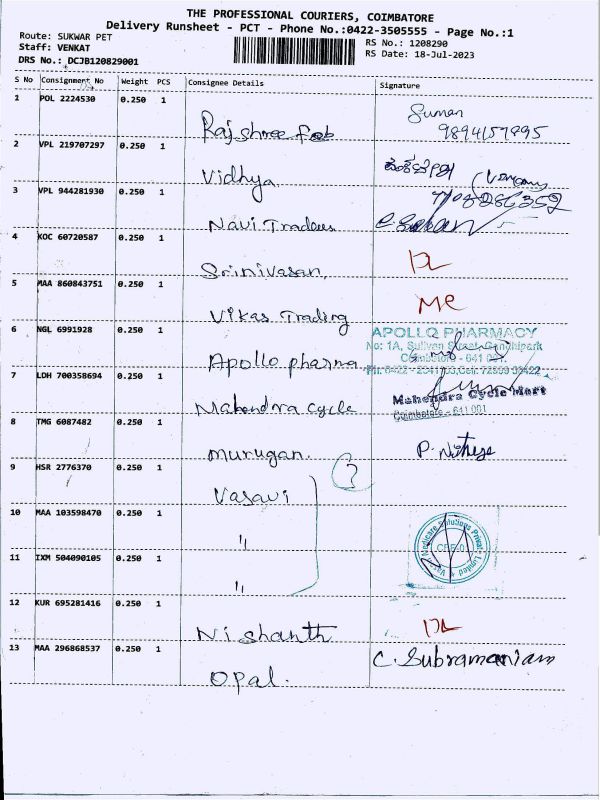 THE PROFESSIONAL COURIERS, COIMBATORE
Delivery Runsheet - PCT - Phone No.:0422-3505555 - Page No.:1
Route: SUKWAR PET
RS No.: 1208290
Staff: VENKAT
RS Date: 18-Jul-2023
DRS No.: DCJB120829001
S No Consignment No Weight PCS Consignee Details Signature
1 POL 2224530 0.250 1 Suman
Rajshree fab 9894157995
2 VPL 219707297 0.250 1
Vidhya
3 VPL 944281930 0.250 1
Navi Traders
4 KOC 60720587 0.250 1
Srinivasan DL
5 MAA 860843751 0.250 1
Vikas Trading Me
6 NGL 6991928 0.250 1 APOLLO PHARMACY
No: 1A, Sullivan Street, Gandhipark
Coimbatore - 641 001.
Apollo pharma
7 LDH 700358694 0.250 1
Mahendra Cycle Mart
Mahendra cycle Coimbatore - 641 001
8 TMG 6087482 0.250 1
Murugan. P. Nithya
9 HSR 2776370 0.250 1
Vasavi
10 MAA 103598470 0.250 1
"
11 IXM 504090105 0.250 1
"
12 KUR 695281416 0.250 1
Nishanth DL
13 MAA 296868537 0.250 1 C. Subramaniam
Opal.